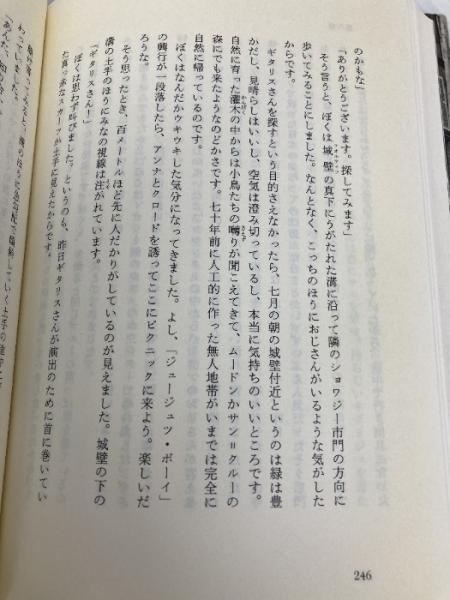 のかもな」
「ありがとうございます。探してみます」
そう言うと、ぼくは城壁の真下にうがたれた溝に沿って隣のショワジー市門の方向に
歩いてみることにしました。なんとなく、こっちのほうにおじさんがいるような気がした
からです。
ギタリスさんを探すという目的さえなかったら、七月の朝の城壁付近というのは緑は豊
かだし、見晴らしはいいし、空気は澄み切っているし、本当に気持ちのいいところです。
自然に育った灌木の中からは小鳥たちの囀りが聞こえてきて、ムードンかサン＝クルーの
森にでも来たようなのどかさです。七十年前に人工的に作った無人地帯がいまでは完全に
自然に帰っているのです。
ぼくはなんだかウキウキした気分になってきました。よし、「ジュージュツ・ボーイ」
の興行が一段落したら、アンナとクロードを誘ってここにピクニックに来よう。楽しいだ
ろうな。
そう思ったとき、百メートルほど先に人だかりがしているのが見えました。城壁の下の
溝の土手のほうにみなの視線は注がれています。
「ギタリスさん！」
ぼくは思わず叫びました。というのも、昨日ギタリスさんが演出のために首に巻いてい
た真っ赤なスカーフが土手に見えたからです。
わっていました。
246